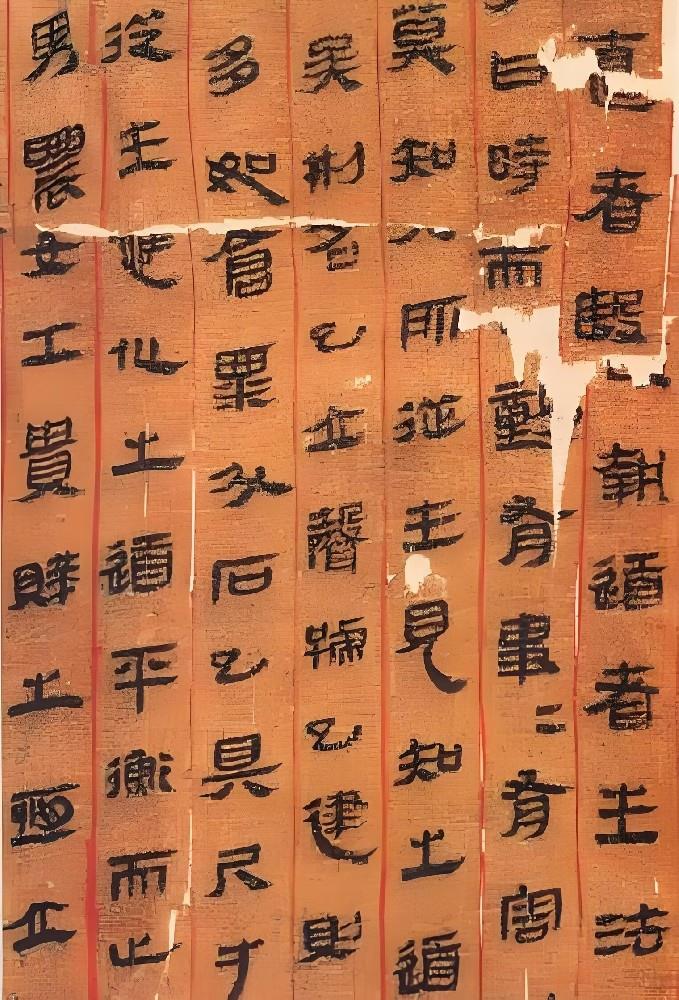 直者殹故執道者生法
曰時而動有事=有害
莫知亓所從生見知之道
矣刑名已立聲號已建則
多如倉粟斗石已具尺寸
從生應化之道平衡而止
男農女工貴賤之恒立